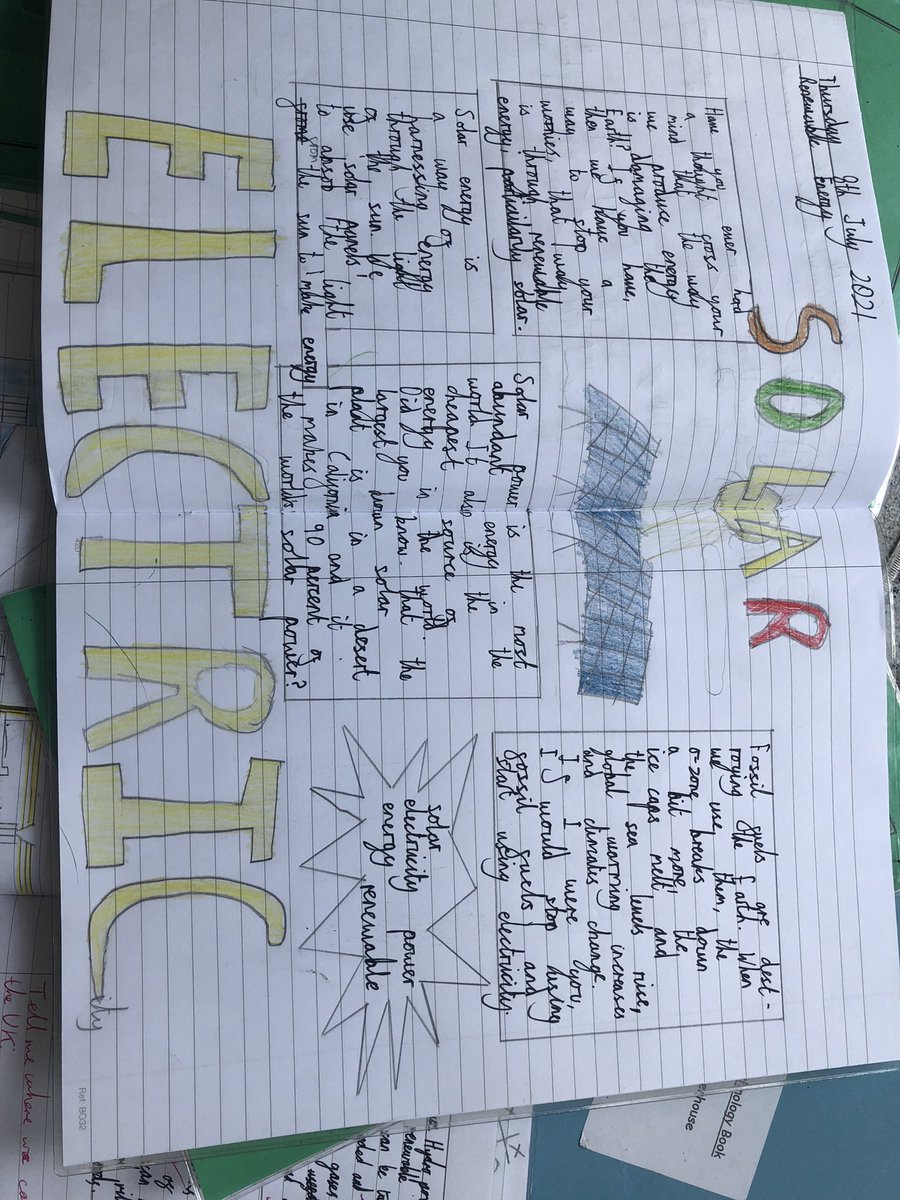 Thursday 9th July 2021
Renewable Energy
SOLAR
Have you ever had
a thought cross your
mind that the way
we produce energy
is damaging the
Earth? If you have,
then we have a
way to stop your
worries, that way
is through renewable
energy, particularly solar.
Solar energy is
a way of
harnessing energy
through the light
of the sun. We
use solar
to the light
from the sun to make energy
Solar power is the most
abundant energy in the
world. It also is the
cheapest source of
energy in the world.
Did you know that the
largest known solar
plant is in a desert
in and it
makes 90 percent of
the worlds solar power?
Fossil fuels are dest-
roying the Earth. When
we use them, the
o-zone breaks down
a bit more, the
ice caps melt and
the sea levels rise,
global warming increases
and climates change.
If I were you,
I would stop
fossil fuels and
start using electricity.
solar
electricity power
energy renewable
ELECTRICity
420
Ref: BO32
nology Book
er/house
Tell me where we ca
the UK.
Hydro
renewable
can be
gases